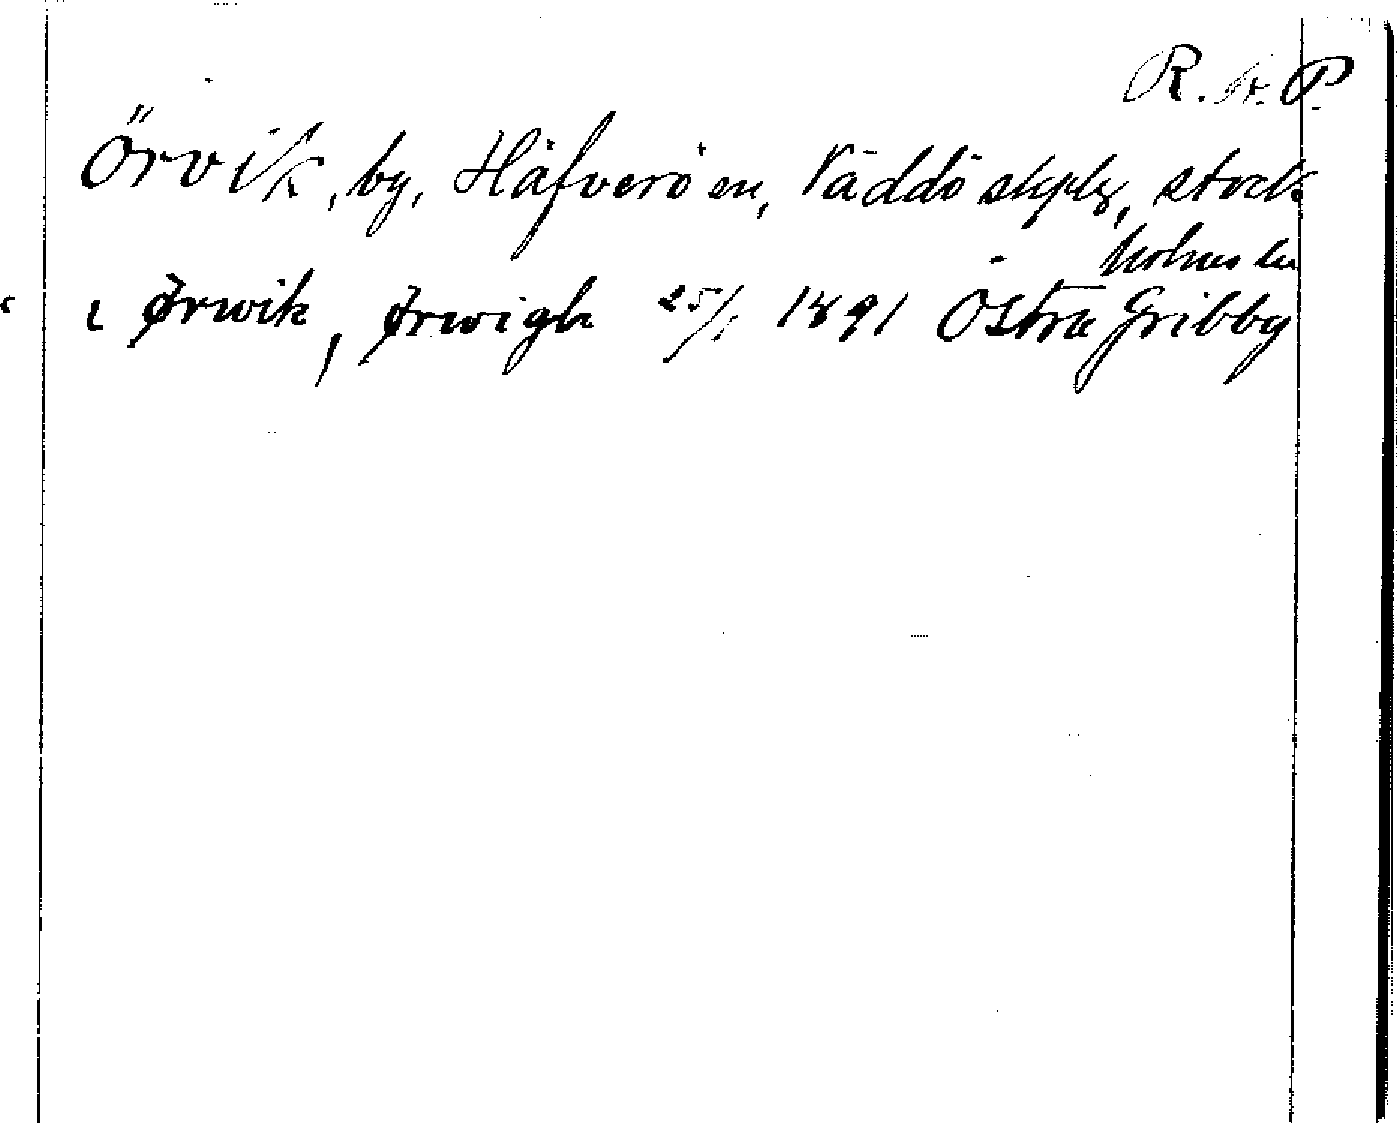 R. Ar. P.
Örvik, by, Häfverö sn, Väddö skplg, Stock
holms län
i Ørwik, Ørwigh 25/1 1891 Östra Gribby